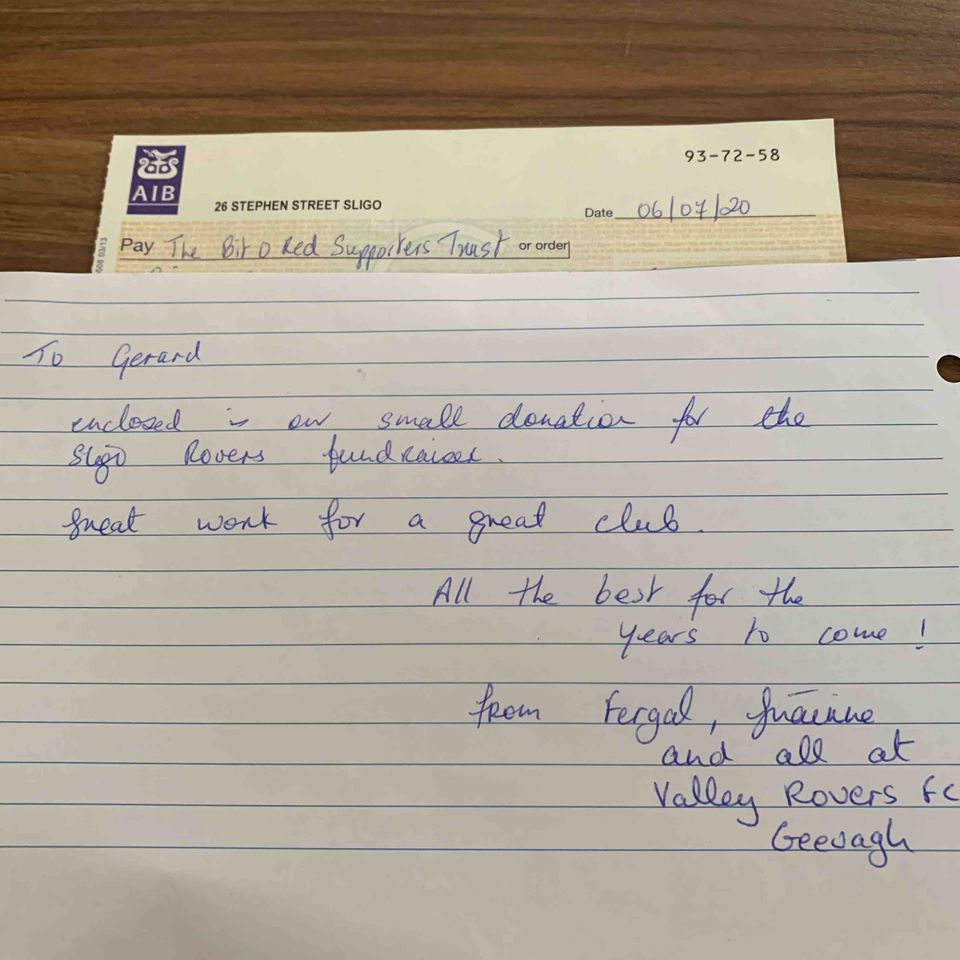 93-72-58
AIB
26 STEPHEN STREET SLIGO
Date 06/07/20
Pay The Bit O Red Supporters Trust or order
To Gerard
enclosed is our small donation for the
Sligo Rovers fundraiser.
Great work for a great club.
All the best for the
years to come!
from Fergal, Gráinne
and all at
Valley Rovers FC
Geevagh